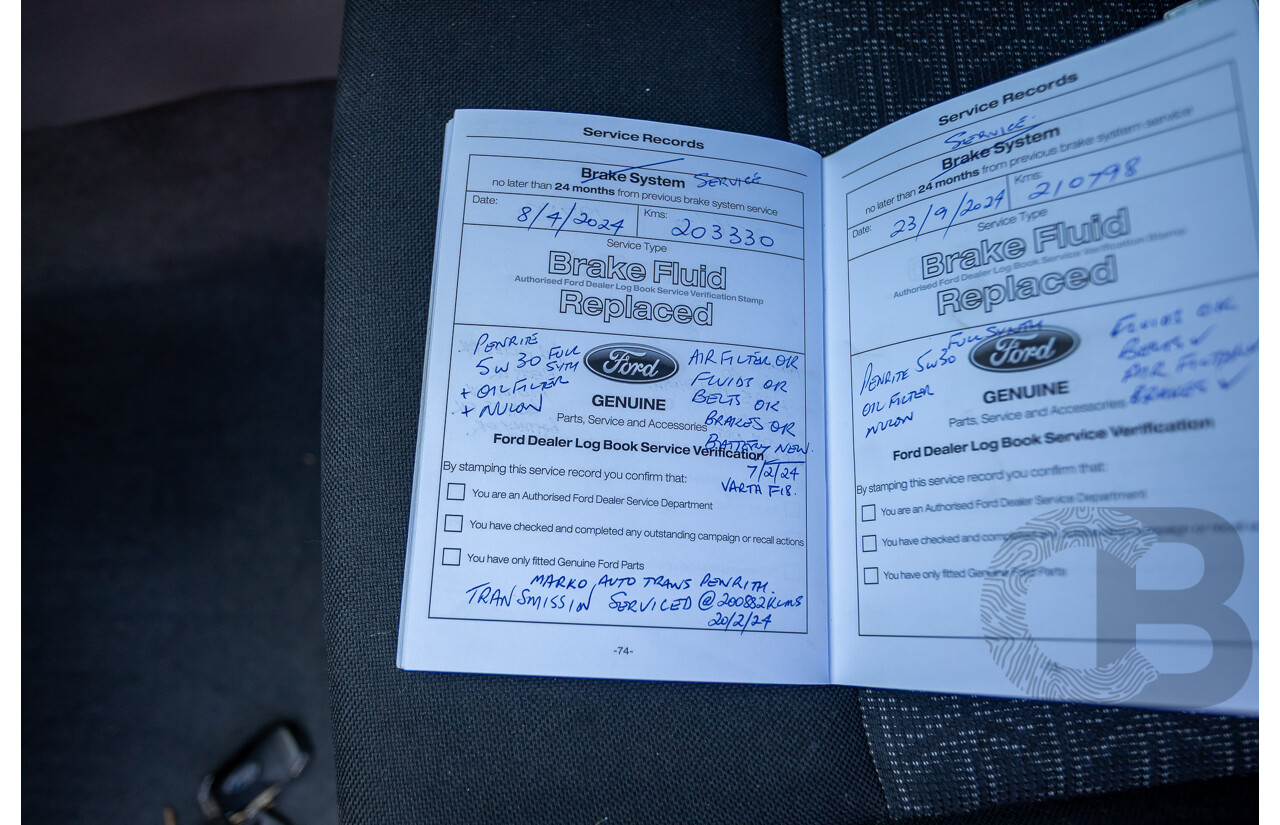 Service Records
Brake System SERVICE
no later than 24 months from previous brake system service
Date: 8/4/2024 Kms: 203330
Service Type
Brake Fluid
Authorised Ford Dealer Log Book Service Verification Stamp
Replaced
PENRITE
5W 30 FULL
SYTH
+ OIL FILTER
+ NULON
Ford
AIR FILTER OK
FLUIDS OK
BELTS OK
BRAKES OK
BATTERY NEW.
7/2/24
VARTA F18.
GENUINE
Parts, Service and Accessories
Ford Dealer Log Book Service Verification
By stamping this service record you confirm that:
You are an Authorised Ford Dealer Service Department
You have checked and completed any outstanding campaign or recall actions
You have only fitted Genuine Ford Parts
MARKO AUTO TRANS PENRITH.
TRANSMISSION SERVICED @ 200882 KMS
20/2/24
-74-
Service Records
SERVICE.
Brake System
no later than 24 months from previous brake system service
Date: 23/9/2024 Kms: 210798
Service Type
Brake Fluid
Authorised Ford Dealer Log Book Service Verification Stamp
Replaced
FULL SYNTH
PENRITE 5W30
OIL FILTER
NULON
Ford
FLUIDS OK
BELTS ✓
AIR FILTER
BRAKES ✓
GENUINE
Parts, Service and Accessories
Ford Dealer Log Book Service Verification
By stamping this service record you confirm that:
You are an Authorised Ford Dealer Service Department
You have checked and completed any outstanding campaign or recall
You have only fitted Genuine Ford Parts
CB